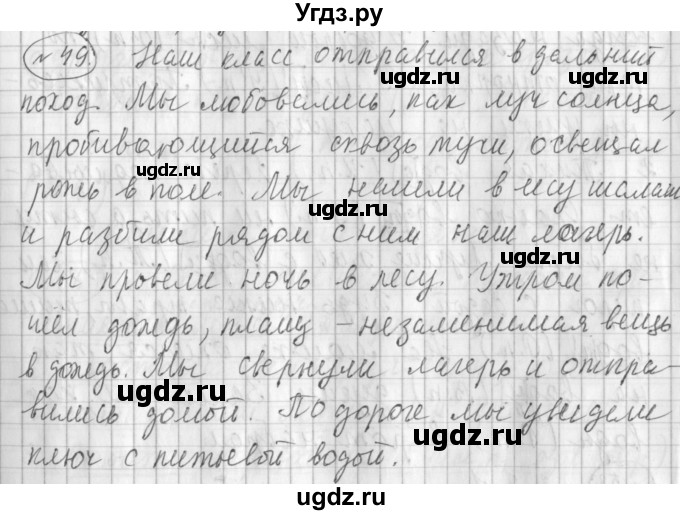 Угдз.ру
№ 49. Наш класс отправился в дальний
поход. Мы любовались, как луч солнца,
пробивающийся сквозь тучи, освещал
рожь в поле. Мы нашли в лесу шалаш
и разбили рядом с ним наш лагерь.
Мы провели ночь в лесу. Утром по-
шёл дождь, плащ - незаменимая вещь
в дождь. Мы свернули лагерь и отпра-
вились домой. По дороге мы увидели
ключ с питьевой водой.
ugdz.ru
ugdz.ru
ugdz.ru
ugdz.ru
ugdz.ru
ugdz.ru
ugdz.ru
ugdz.ru
ugdz.ru
ugdz.ru